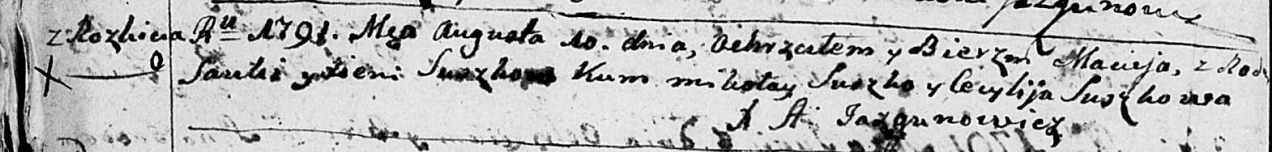 z Rozhina Ru 1791. Mca Augusta 10. dnia, Ochrzciłem y Bierzm Macieja, z Rodz
Sawki y Xieni Suszkow Kum mikołay Suszko y Cecylija Suszkowa
X A Jazgunowicz